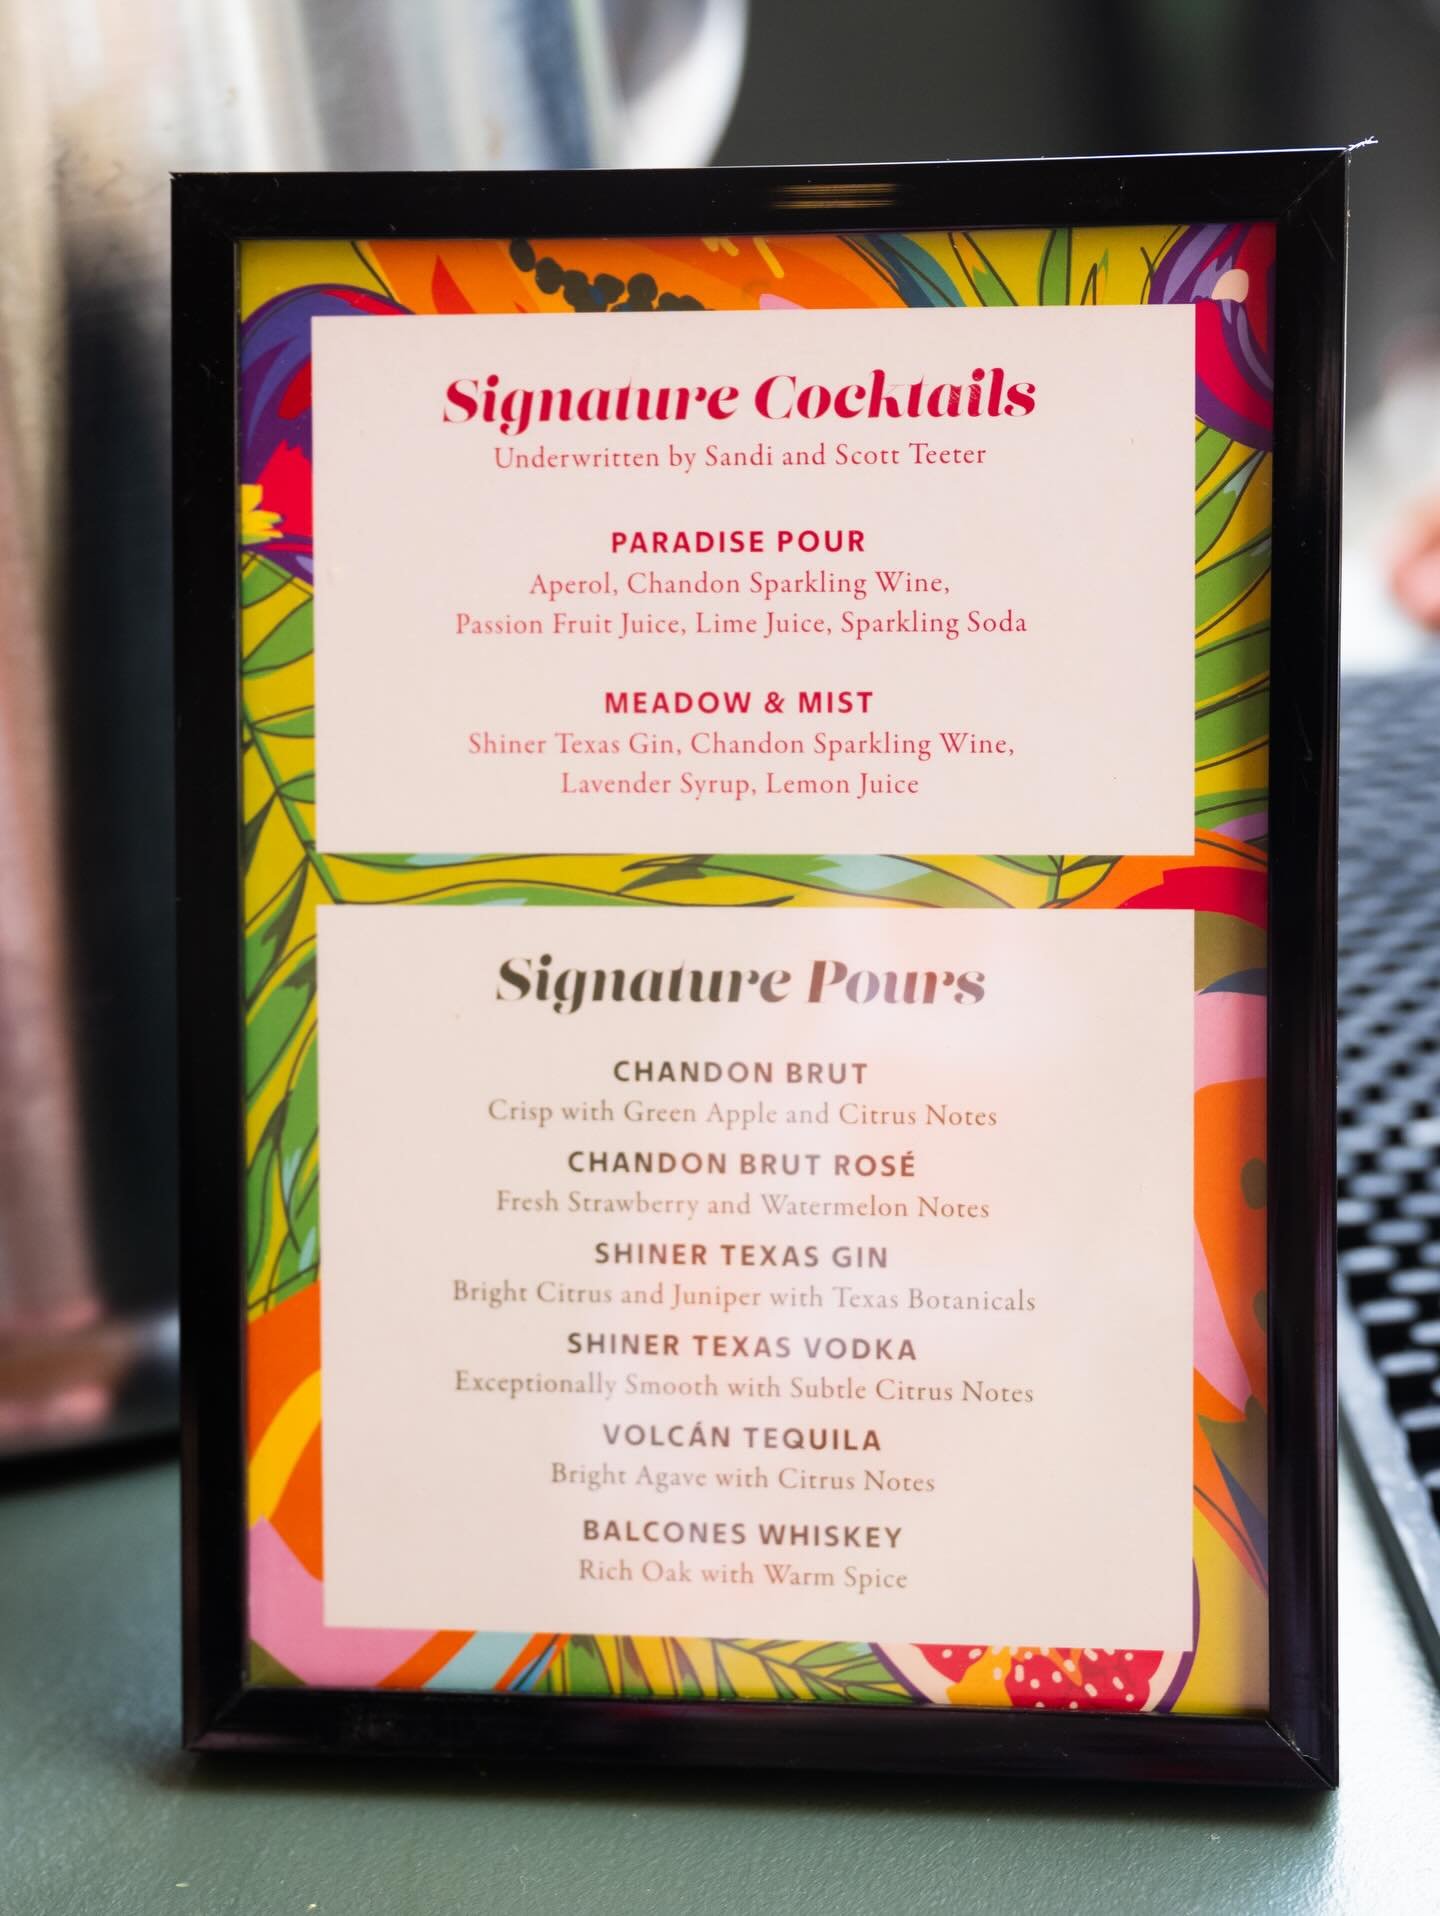 Signature Cocktails
Underwritten by Sandi and Scott Teeter
PARADISE POUR
Aperol, Chandon Sparkling Wine,
Passion Fruit Juice, Lime Juice, Sparkling Soda
MEADOW & MIST
Shiner Texas Gin, Chandon Sparkling Wine,
Lavender Syrup, Lemon Juice
Signature Pours
CHANDON BRUT
Crisp with Green Apple and Citrus Notes
CHANDON BRUT ROSÉ
Fresh Strawberry and Watermelon Notes
SHINER TEXAS GIN
Bright Citrus and Juniper with Texas Botanicals
SHINER TEXAS VODKA
Exceptionally Smooth with Subtle Citrus Notes
VOLCÁN TEQUILA
Bright Agave with Citrus Notes
BALCONES WHISKEY
Rich Oak with Warm Spice